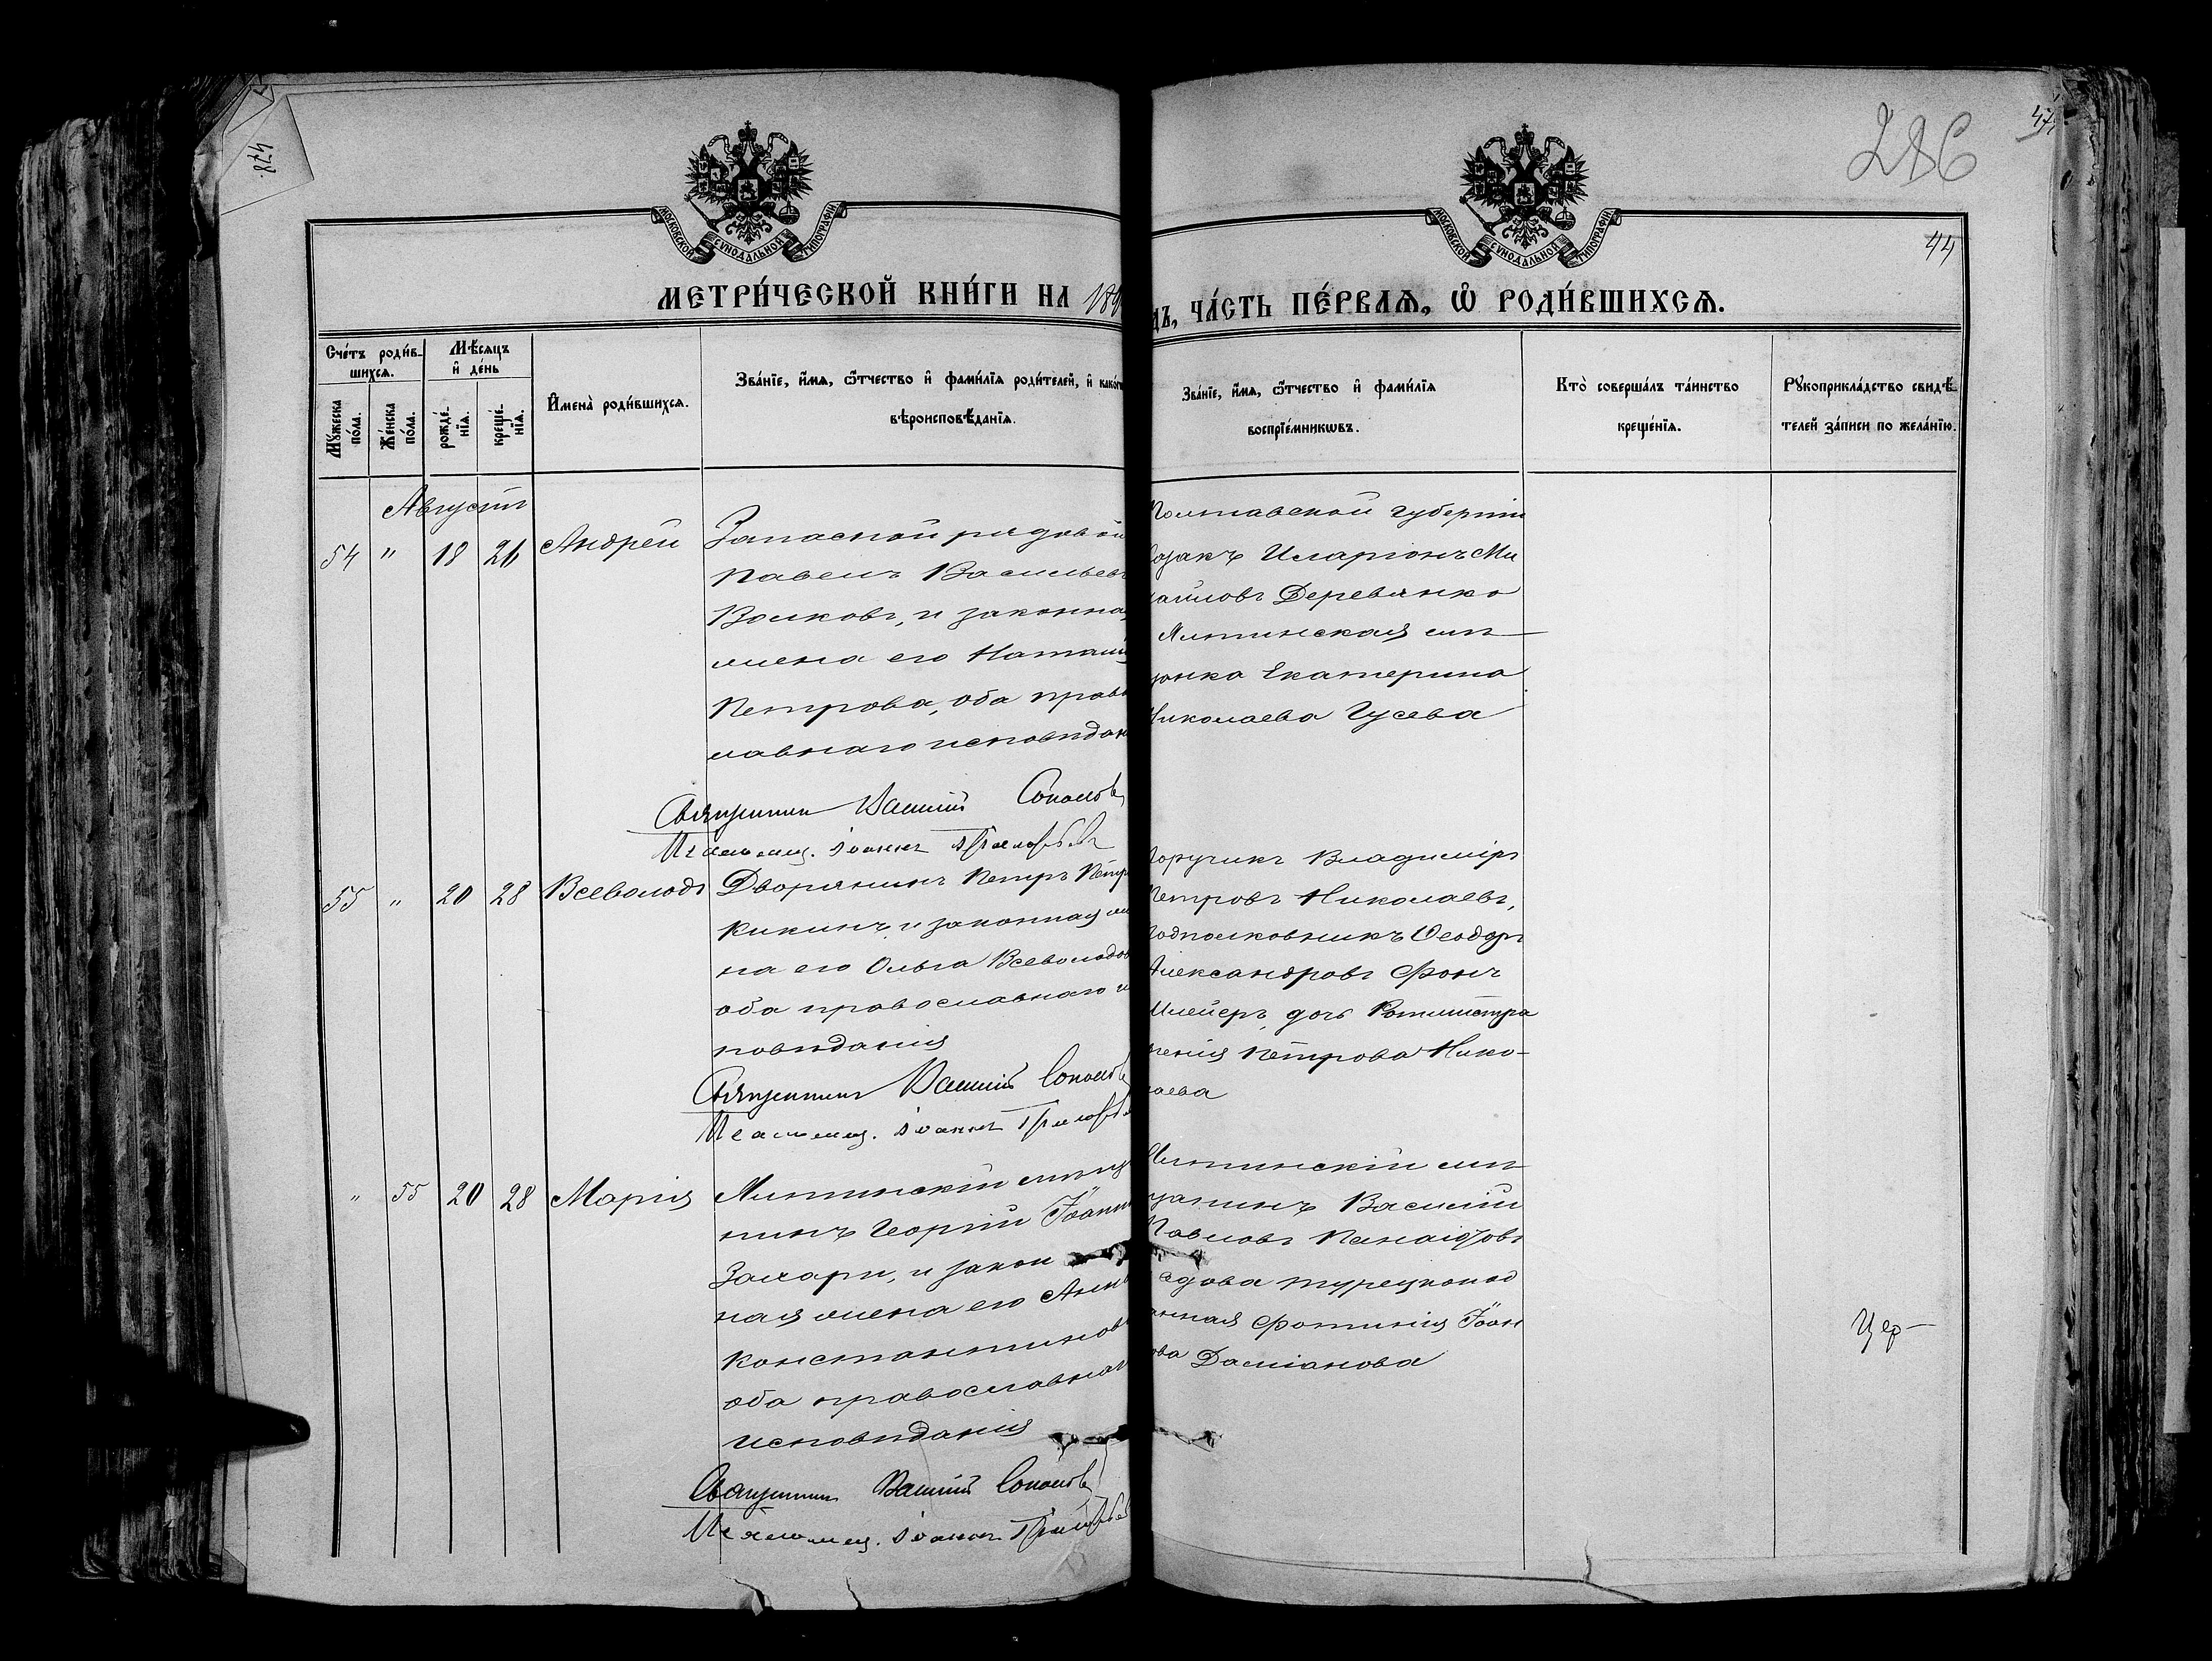 478.
286
44
МОСКОВСКОЙ СѴНОДАЛЬНОЙ ТИПОГРАФІИ
МОСКОВСКОЙ СѴНОДАЛЬНОЙ ТИПОГРАФІИ
МЕТРИ́ЧЕСКОЙ КНИ́ГИ НА 189
ДЪ, ЧА́СТЬ ПЕ́РВАѦ, Ѡ҆ РОДИ́ВШИХСѦ.
Сче́тъ роди́в-
шихсѧ.
Мѣ́сѧцъ
и҆ де́нь
Мꙋ́жеска
по́ла.
Же́нска
по́ла.
рожде́-
нїѧ.
креще́-
нїѧ.
И҆мена̀ роди́вшихсѧ.
Зва́нїе, и҆́мѧ, ѻ҆́тчество и҆ фами́лїѧ роди́телей, и҆ како́г
вѣроисповѣ́данїѧ.
Зва́нїе, и҆́мѧ, ѻ҆́тчество и҆ фами́лїѧ
воспрїе́мникωвъ.
Кто̀ соверша́лъ та́инство
креще́нїѧ.
Рꙋкоприкла́дство свидѣ́-
телей за́писи по жела́нїю.
Августъ
54 " 18 26 Андрей
Запасной рядовой
Павелъ Васильев
Волковъ, и законна
жена его Наталія
Петрова, оба прав
лавнаго исповѣдан
Полтавской губерніи
козакъ Иларіонъ Ми
хайловъ Деревянко
Ялтинская мѣ-
щанка Екатерина
Николаева Гусева
Священникъ Василій Соколовъ
Псаломщ. Іоаннъ
55 " 20 28 Всеволодъ
Дворянинъ Петръ Петр
Кикинъ, и законная же
на его Ольга Всеволодов
оба православнаго ис
повѣданія
Поручикъ Владиміръ
Петровъ Николаевъ,
Подполковникъ Ѳеодоръ
Александровъ Фонъ
дочь Ротмистра
Петрова Нико-
лаева
Священникъ Василій Соколовъ
Псаломщ. Іоаннъ
" 55 20 28 Марія
Ялтинскій мѣща
нинъ Георгій Іоанн
Захари, и закон
ная жена его Анна
Константинов
оба православнаг
исповѣданія
Ялтинскій мѣ-
щанинъ Василій
Павловъ Панаіотовъ
вдова турецкопод
анная Фотинія Іоан
ова Даміанова
Цер-
Священникъ Василій Соколовъ
Псаломщ. Іоаннъ